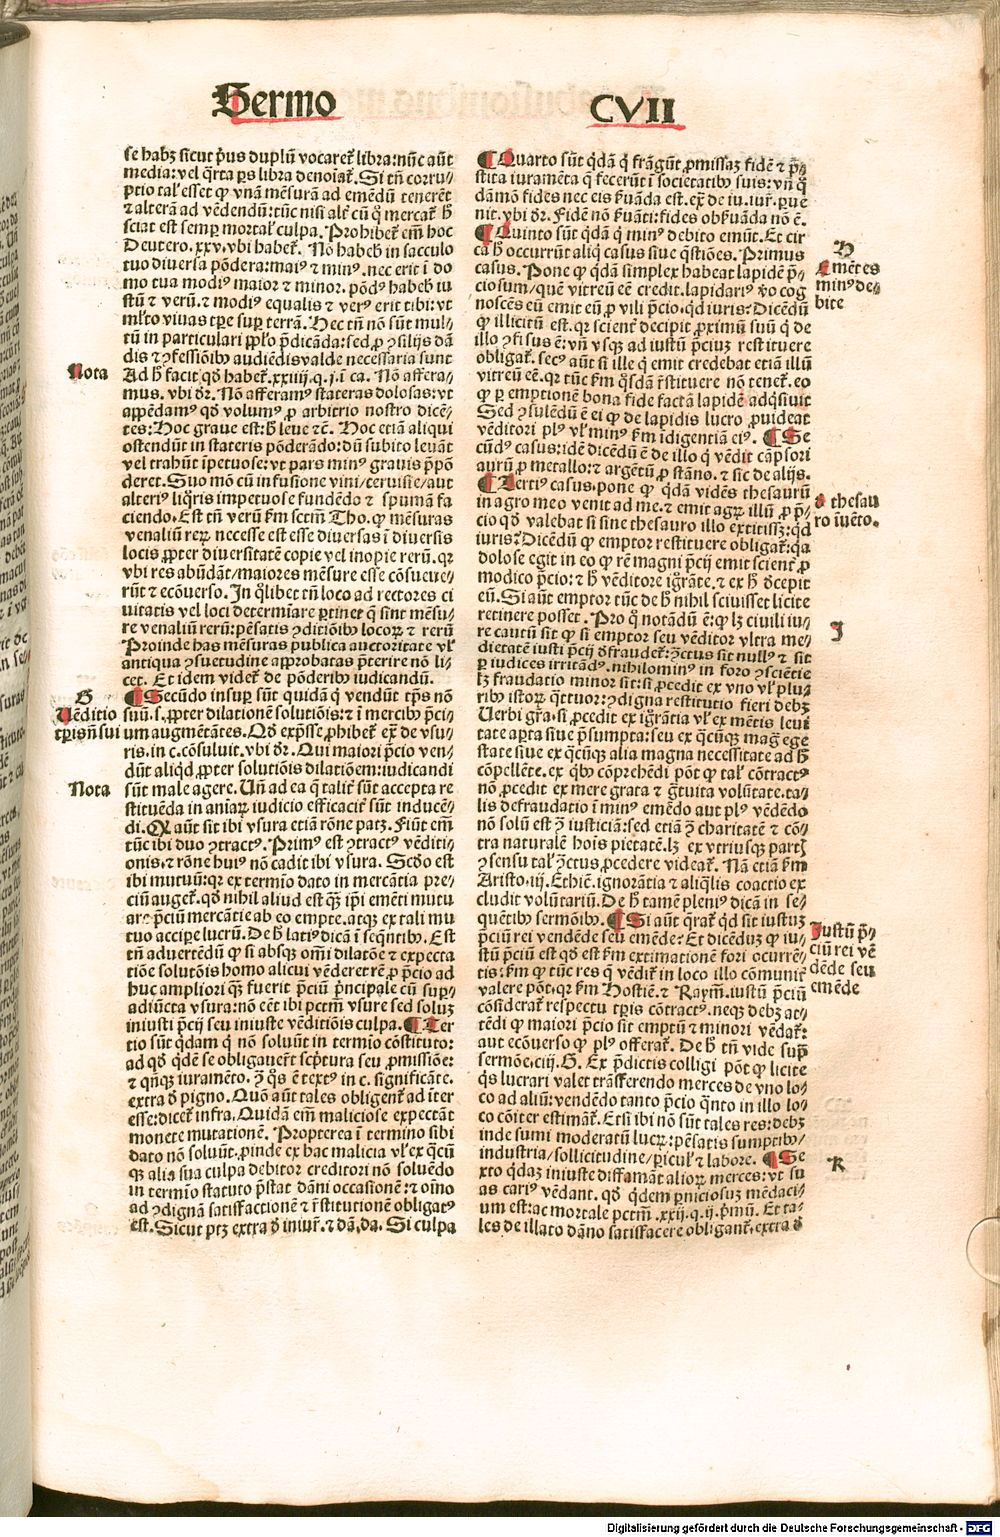 Sermo
CVII
se habꝫ sicut pͥus duplū vocaret̄ libra: nūc aūt
media: vel q̄rta ps̄ libra denoiat̄. Si tn̄ corru⸗
ptio tal' esset ꝙ vnā mēsurā ad emēdū tenerēt
⁊ alterā ad vēdendū: tūc nisi alr̄ cū q̄ mercat̄ h̄
sciat est semꝑ mortal' culpa. Prohibet̄ em̄ hoc
Deutero. xxv. vbi habet̄. Nō habeb̄ in sacculo
tuo diuersa pōdera: maiꝰ ⁊ minꝰ. nec erit ī do
mo tua modiꝰ maior ⁊ minor. pōdꝰ habeb̄ iu
stū ⁊ verū. ⁊ modiꝰ equalis ⁊ verꝰ erit tibi: vt
ml̄to viuas tꝑe suꝑ terrā. Hec tn̄ nō sūt mul⸗
tū in particulari pp̄lo p̄dicāda: sed ꝓ ꝯsilijs dā
dis ⁊ ꝯfessiōibꝰ audiēdis valde necessaria sunt
Nota
Ad h̄ facit qd̄ habet̄. xxiiij. q. j. ī ca. Nō affera⸗
mus. vbi dr̄. Nō afferamꝰ stateras dolosas: vt
appēdamꝰ qd̄ volumꝰ ꝓ arbitrio nostro dicē⸗
tes: Hoc graue est: h̄ leue ⁊c̄. Hoc etiā aliqui
ostendūt in stateris pōderādo: dū subito leuāt
vel trahūt īpetuose: vt pars minꝰ grauis p̄pō
deret. Suo mō cū infusione vini/ceruisie/aut
alteriꝰ liq̄ris impetuose fundēdo ⁊ spumā fa
ciendo. Est tn̄ verū ẜm sctm̄ Tho. ꝙ mēsuras
venaliū reꝝ necesse est esse diuersas ī diuersis
locis ꝓpter diuersitatē copie vel inopie rerū. qꝛ
vbi res abūdāt/maiores mēsure esse cōsueue⸗
rūt ⁊ ecōuerso. In q̄libet tn̄ loco ad rectores ci
uitatis vel loci determiare ꝑtinet q̄ sint mēsu⸗
re venaliū rerū: pēsatis ꝯditiōibꝰ locoꝝ ⁊ rerū
Proinde has mēsuras publica auctoritate vl'
antiqua ꝯsuetudine approbatas p̄terire nō li⸗
cet. Et idem videt̄ de pōderibꝰ iudicandū.
G
Vēditio
tꝑis nō sui
¶ Secūdo insuꝑ sūt quidā q̄ vendūt tꝑs nō
suū. s. ꝓpter dilationē solutiōis: ⁊ ī mercibꝰ p̄ci⸗
um augmētātes. Qd̄ exp̄sse ꝓhibet̄ ex̄ de vsu⸗
ris. in c. cōsuluit. vbi dr̄. Qui maiori p̄cio ven⸗
dūt aliqd̄ ꝓpter solutiōis dilatiōem: iudicandi
Nota
sūt male agere. Un̄ ad ea q̄ talit̄ sūt accepta re
stituēda in aniaꝝ iudicio efficacit̄ sūt inducē⸗
di. Ꝙ aūt sit ibi vsura etiā rōne patꝫ. Fiūt em̄
tūc ibi duo ꝯtractꝰ. Primꝰ est ꝯtractꝰ vēditi⸗
onis. ⁊ rōne huiꝰ nō cadit ibi vsura. Scd̄o est
ibi mutuū: qꝛ ex termio dato in mercātia pre⸗
ciū auget̄. qd̄ nihil aliud est q̄ꝫ ip̄i emēti mutu
are p̄ciū mercātie ab eo empte. atqꝫ ex tali mu
tuo acciꝑe lucrū. De h̄ latiꝰ dicā ī seq̄ntibꝰ. Est
tn̄ aduertēdū ꝙ si absqꝫ om̄i dilatōe ⁊ expecta
tiōe solutiōis homo alicui vēderet rē ꝓ p̄cio ad
huc ampliori q̄ꝫ fuerit p̄ciū pͥncipale cū suꝑ⸗
adiūcta vsura: nō eēt ibi pctm̄ vsure sed soluꝫ
iniusti p̄cij seu iniuste vēditiōis culpa. ¶ Ter
tio sūt qͥdam q̄ nō soluūt in termio cōstituto:
ad qd̄ qͥdē se obligauer̄t scp̄tura seu ꝓmissiōe:
⁊ qn̄qꝫ iuramēto. ꝯ̄ qͦs ē textꝰ in c. significāte.
extra ð pigno. Quō aūt tales obligent̄ ad īter
esse: dicet̄ infra. Quidā em̄ maliciose expectāt
monete mutationē. Propterea ī termino sibi
dato nō soluūt. ꝓinde ex hac malicia vl' ex qͣcū
qꝫ alia sua culpa debitor creditori nō soluēdo
in termīo statuto p̄stat dāni occasionē: ⁊ oīno
ad ꝯdignā satisfactionē ⁊ r̄stitutionē obligatꝰ
est. Sicut ptꝫ extra ð iniur̄. ⁊ dā. da. Si culpa
¶ Quarto sūt qͥdā q̄ frāgūt ꝓmissaꝫ fidē ⁊ p̄⸗
stita iuramēta q̄ fecerūt ī societatibꝰ suis: vn̄ q̄
dāmō fides nec eis ẜuāda est. ex̄ de iu. iur̄. ꝑue
nit. vbi dr̄. Fidē nō ẜuāti: fides obẜuāda nō ē.
¶ Quinto sūt qͥdā q̄ minꝰ debito emūt. Et cir
H
Emētes
minꝰ de⸗
bite
ca h̄ occurrūt aliq̄ casus siue q̄stiōes. Primus
casus. Pone ꝙ qͥdā simplex habeat lapidē p̄⸗
ciosum/quē vitreū eē credit. lapidariꝰ v̄o cog
noscēs eū emit eū ꝓ vili p̄cio. qd̄ iuris: Dicēdū
ꝙ illicitū est. qꝛ scient̄ decipit ꝓximū suū q̄ de
illo ꝯfisus ē: vn̄ vsqꝫ ad iustū p̄ciuꝫ restituere
obligat̄. secꝰ aūt si ille q̄ emit credebat etiā illū
vitreū eē. qꝛ tūc ẜm qͦsdā r̄stituere nō tenet̄. eo
ꝙ ꝑ emptionē bona fide factā lapidē adqͥsiuit
Sed ꝯsulēdū ē ei ꝙ de lapidis lucro ꝓuideat
vēditori plꝰ vl' minꝰ ẜm īdigentiā eiꝰ. ¶ Se
cūdꝰ casus: idē dicēdū ē de illo q̄ vēdit cāpsori
aurū ꝓ metallo: ⁊ argētū ꝓ stāno. ⁊ sic de alijs.
ð thesau
ro īuēto.
¶ Tertiꝰ casus. pone ꝙ qͥdā vidēs thesaurū
in agro meo venit ad me. ⁊ emit agꝝ illū ꝓ p̄⸗
cio qd̄ valebat si sine thesauro illo extitissꝫ: qd̄
iuris? Dicēdū ꝙ emptor restituere obligat̄: qꝛ
dolose egit in eo ꝙ rē magni p̄cij emit scient̄ ꝓ
modico p̄cio: ⁊ h̄ vēditore igrāte. ⁊ ex h̄ ðcepit
eū. Si aūt emptor tūc de h̄ nihil sciuisset licite
retinere posset. Pro q̄ notādū ē: ꝙ lꝫ ciuili iu⸗
J
re cautū sit ꝙ si emptor seu vēditor vltra me⸗
dietatē iusti p̄cij ðfraudet̄: ꝯctus sit nullꝰ ⁊ sit
ꝑ iudices irritādꝰ. nihilominꝰ in foro ꝯsciētie
lꝫ fraudatio minor sit: si ꝓcedit ex vno vl' plu⸗
ribꝰ istoꝝ qͣttuor: ꝯdigna restitutio fieri debꝫ
Uerbi gr̄a. si ꝓcedit ex igrātia vl' ex mētis leui
tate aꝑta siue p̄sumpta: seu ex qͣcūqꝫ mag̃ ege
state siue ex qͣcūqꝫ alia magna necessitate ad h̄
cōpellēte. ex qͥbꝰ cōprehēdi pōt ꝙ tal' cōtractꝰ
nō ꝓcedit ex mere grata ⁊ gͣtuita volūtate. ta⸗
lis defraudatio ī minꝰ emēdo aut plꝰ vēdēdo
nō solū est ꝯ̄ iusticiā: sed etiā ꝯ̄ charitatē ⁊ cō⸗
tra naturalē hoīs pietatē. lꝫ ex vtriusqꝫ partꝭ
ꝯsensu tal' ꝯctus ꝓcedere videat̄. Nā etiā ẜm
Aristo. iij. Ethic̄. ignorātia ⁊ aliq̄lis coactio ex
cludit volūtariū. De h̄ tamē pleniꝰ dicā in se⸗
quētibꝰ sermōibꝰ. ¶ Si aūt q̄rat̄ qd̄ sit iustuꝫ
Justū p̄⸗
ciū rei vē
dēde seu
emēde
p̄ciū rei vendēde seu emēde: Et dicēduꝫ ꝙ iu⸗
stū p̄ciū est qd̄ est ẜm extimationē fori ocurrē⸗
tis: ẜm ꝙ tūc res q̄ vēdit̄ in loco illo cōmunit̄
valere pōt. qꝛ ẜm Hostiē. ⁊ Raym̄. iustū p̄ciū
cōsiderat̄ respectu tꝑis cōtractꝰ. neqꝫ debꝫ at⸗
tēdi ꝙ maiori p̄cio sit emptū ⁊ minori vēdat̄:
aut ecōuerso ꝙ plꝰ offerat̄. De h̄ tn̄ vide supͣ
sermōe. ciij. G. Ex p̄dictis colligi pōt ꝙ licite
qͥs lucrari valet trāsferendo merces de vno lo⸗
co ad aliū: vēdendo tanto p̄cio qͣnto in illo lo⸗
co cōiter estimāt̄. Etsi ibi nō sūt tales res: debꝫ
inde sumi moderatū lucꝝ: pēsatis sumptibꝰ/
industria/sollicitudine/ꝑicul' ⁊ labore. ¶ Se
K
xto qͥdaꝫ iniuste diffamāt alioꝝ merces: vt su
as cariꝰ vēdant. qd̄ qͥdem ꝑniciosuꝫ mēdaci⸗
um est: ac mortale pctm̄. xxij. q. ij. pͥmū. Et ta⸗
les de illato dāno satisfacere obligant̄. extra ð
Digitalisierung gefördert durch die Deutsche Forschungsgemeinschaft - DFG